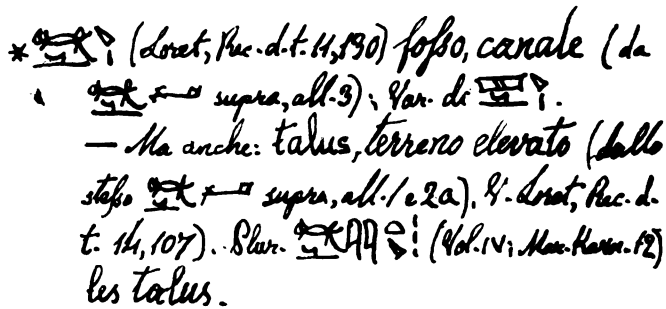 * (Loret, Rec. d. t. 14,190) fosso, canale (da
supra, all. 3); Var. di .
— Ma anche: talus, terreno elevato (dallo
stesso supra, all. 1 e 2a). V. Loret, Rec. d.
t. 14,107). Plur. (Vol. IV; Mar. Karn. 12)
les talus.